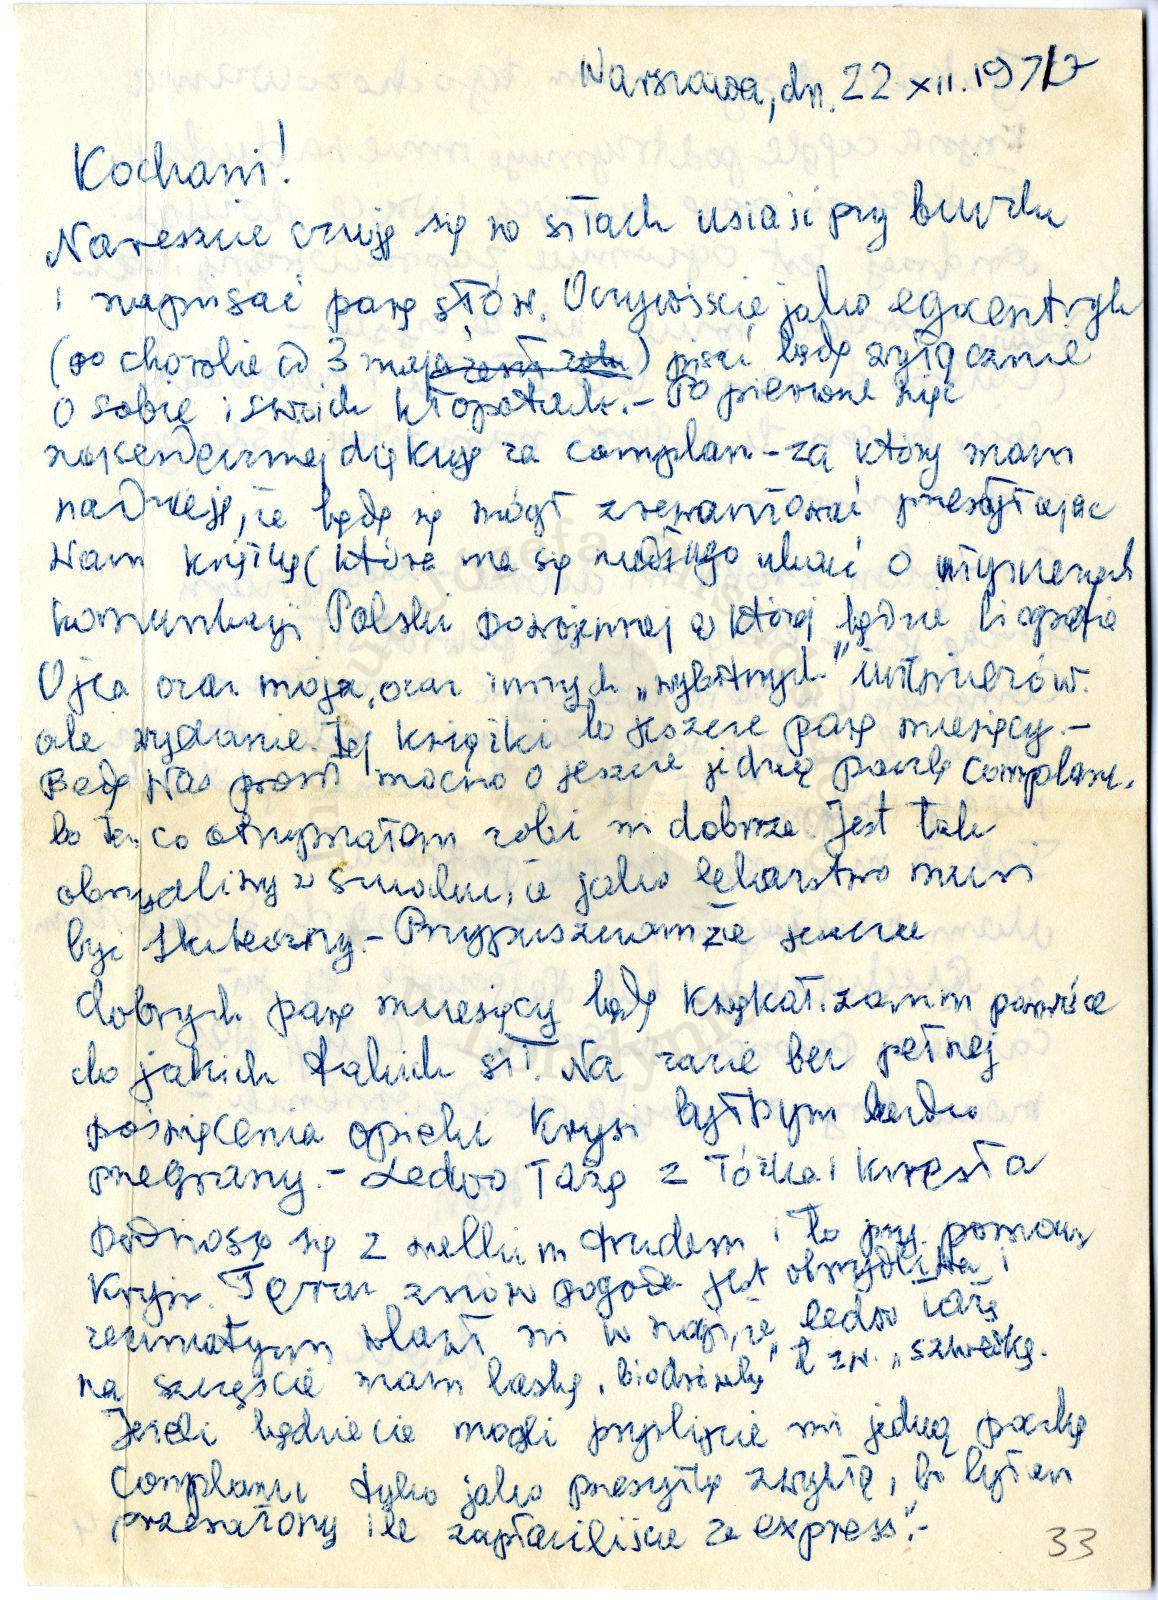 Warszawa, dn. 22 XII. 1977
Kochani!
Nareszcie czuję się na siłach usiąść przy biurku
i napisać parę słów. Oczywiście jako egocentryk
(po chorobie od 3 maja) pisać będę wyłącznie
o sobie i swoich kłopotach. - Po pierwsze więc
najserdeczniej dziękuję za complan - za który mam
nadzieję, że będę się mógł zrewanżować przesyłając
Wam książkę (która ma się niedługo ukazać o
komunikacji Polski powojennej w której będzie biografia
Ojca oraz moja, oraz innych „wybitnych" inżynierów.
ale wydanie tej książki to jeszcze parę miesięcy. -
Będę Was prosił mocno o jeszcze jedną paczkę complanu,
bo ten co otrzymałem robi mi dobrze jest tak
obrzydliwy w smaku, że jako lekarstwo musi
być skuteczny. - Przypuszczam że jeszcze
dobrych parę miesięcy będę zanim powrócę
do jakich takich sił. Na razie bez pełnej
poświęcenia opieki Krysi byłbym bardzo
przegrany. - Ledwo łażę z łóżka i krzesła
podnoszę się z wielkim trudem i to przy pomocy
Krysi. Teraz znów pogoda jest obrzydliwa i
reumatyzm wlazł mi w nogi, że ledwo łażę
na szczęście mam laskę, t zw. „szwejkę.
Jeżeli będziecie mogli przyślijcie mi jedną paczkę
Complanu tylko jako przesyłkę zwykłą, bo byłem
przerażony ile zapłaciliście za express". -
33